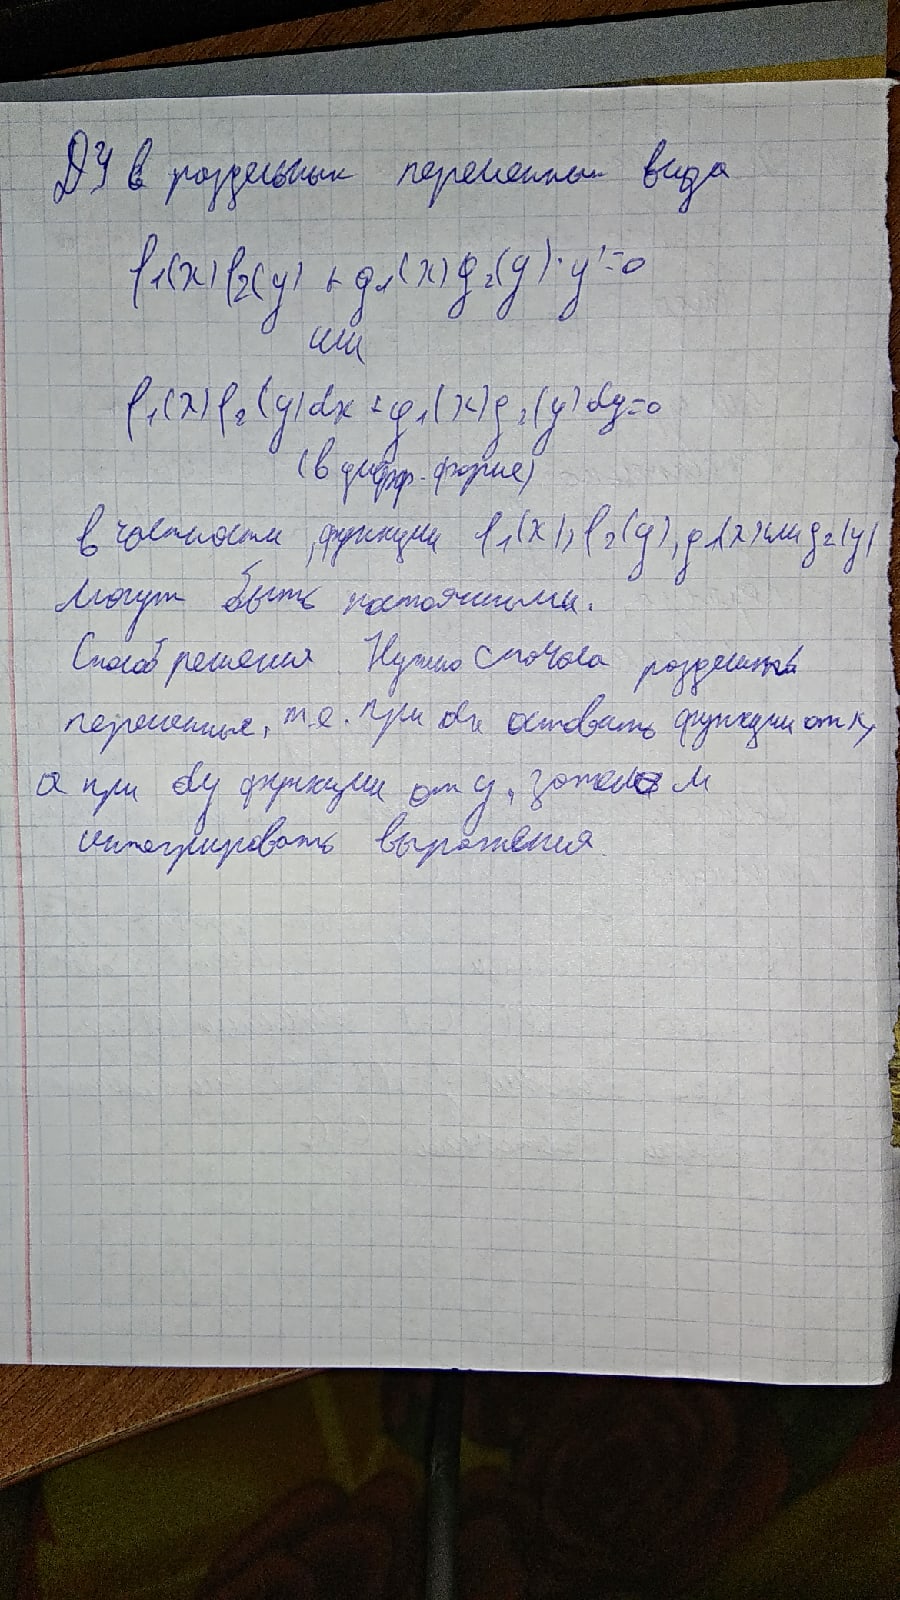 ДУ в раздельных переменных вида
f₁(x) f₂(y) + g₁(x) g₂(y) · y' = 0
или
f₁(x) f₂(y) dx + g₁(x) g₂(y) dy = 0
(в дифф. форме)
в частности, функции f₁(x), f₂(y), g₁(x) или g₂(y)
могут быть постоянными.
Способ решения Нужно сначала разделить
переменные, т.е. при dx оставить функции от x,
а при dy функции от y, затем
интегрировать выражения